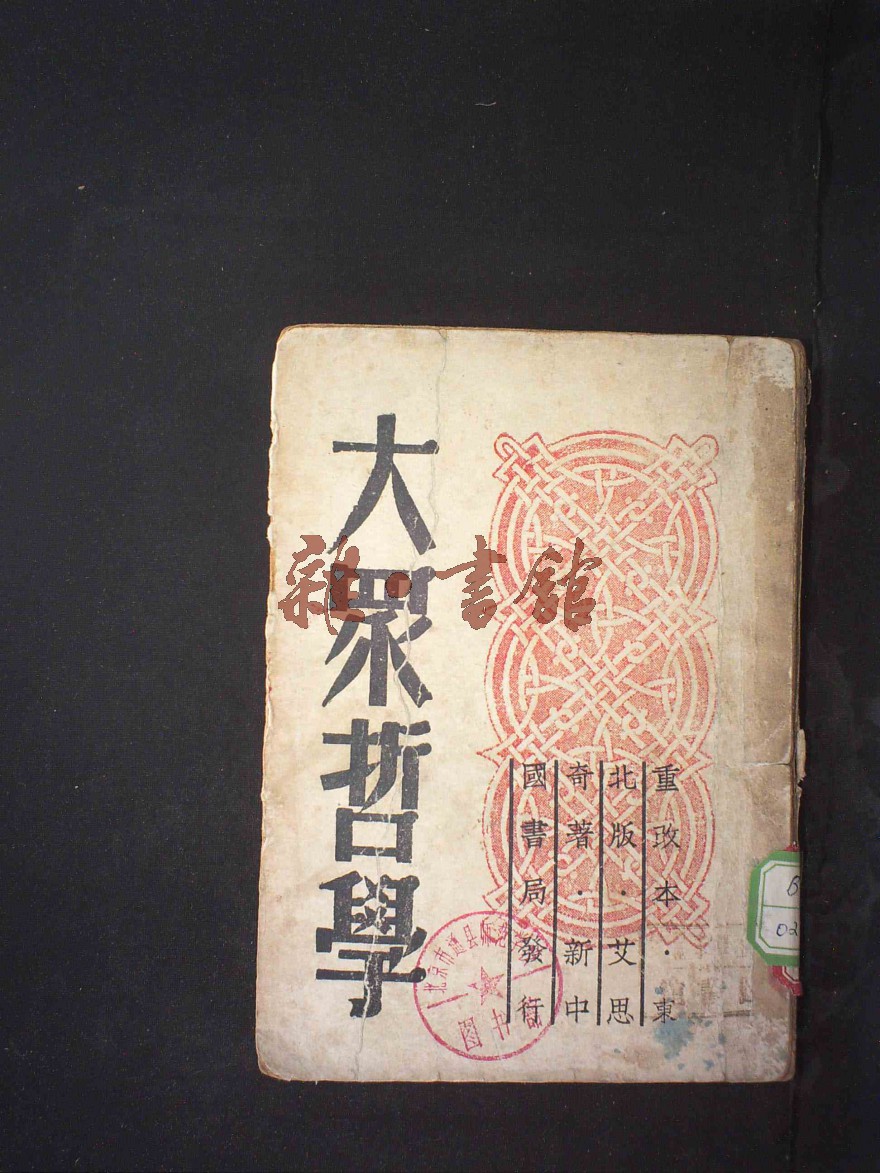 大眾哲學
重改本·東
北版·艾思
奇著·新中
國書局發行
雜·書館
北京市通县师
图书
02